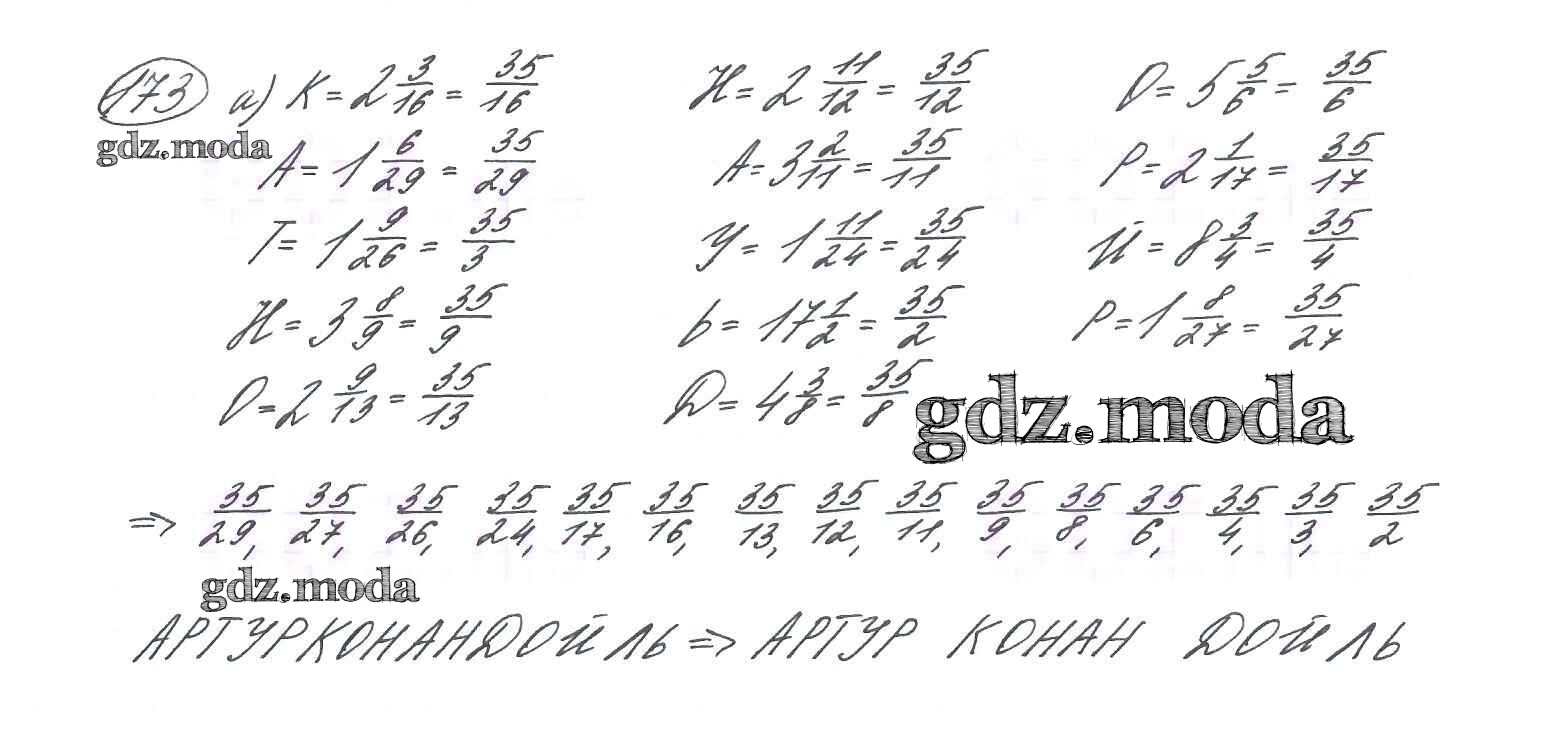 173 а) К = 2 3/16 = 35/16 Н = 2 11/12 = 35/12 О = 5 5/6 = 35/6
gdz.moda
А = 1 6/29 = 35/29 А = 3 2/11 = 35/11 Р = 2 1/17 = 35/17
Т = 1 9/26 = 35/3 У = 1 11/24 = 35/24 Й = 8 3/4 = 35/4
Н = 3 8/9 = 35/9 Ь = 17 1/2 = 35/2 Р = 1 8/27 = 35/27
О = 2 9/13 = 35/13 Д = 4 3/8 = 35/8
gdz.moda
=> 35/29, 35/27, 35/26, 35/24, 35/17, 35/16, 35/13, 35/12, 35/11, 35/9, 35/8, 35/6, 35/4, 35/3, 35/2
gdz.moda
АРТУРКОНАНДОЙЛЬ => АРТУР КОНАН ДОЙЛЬ